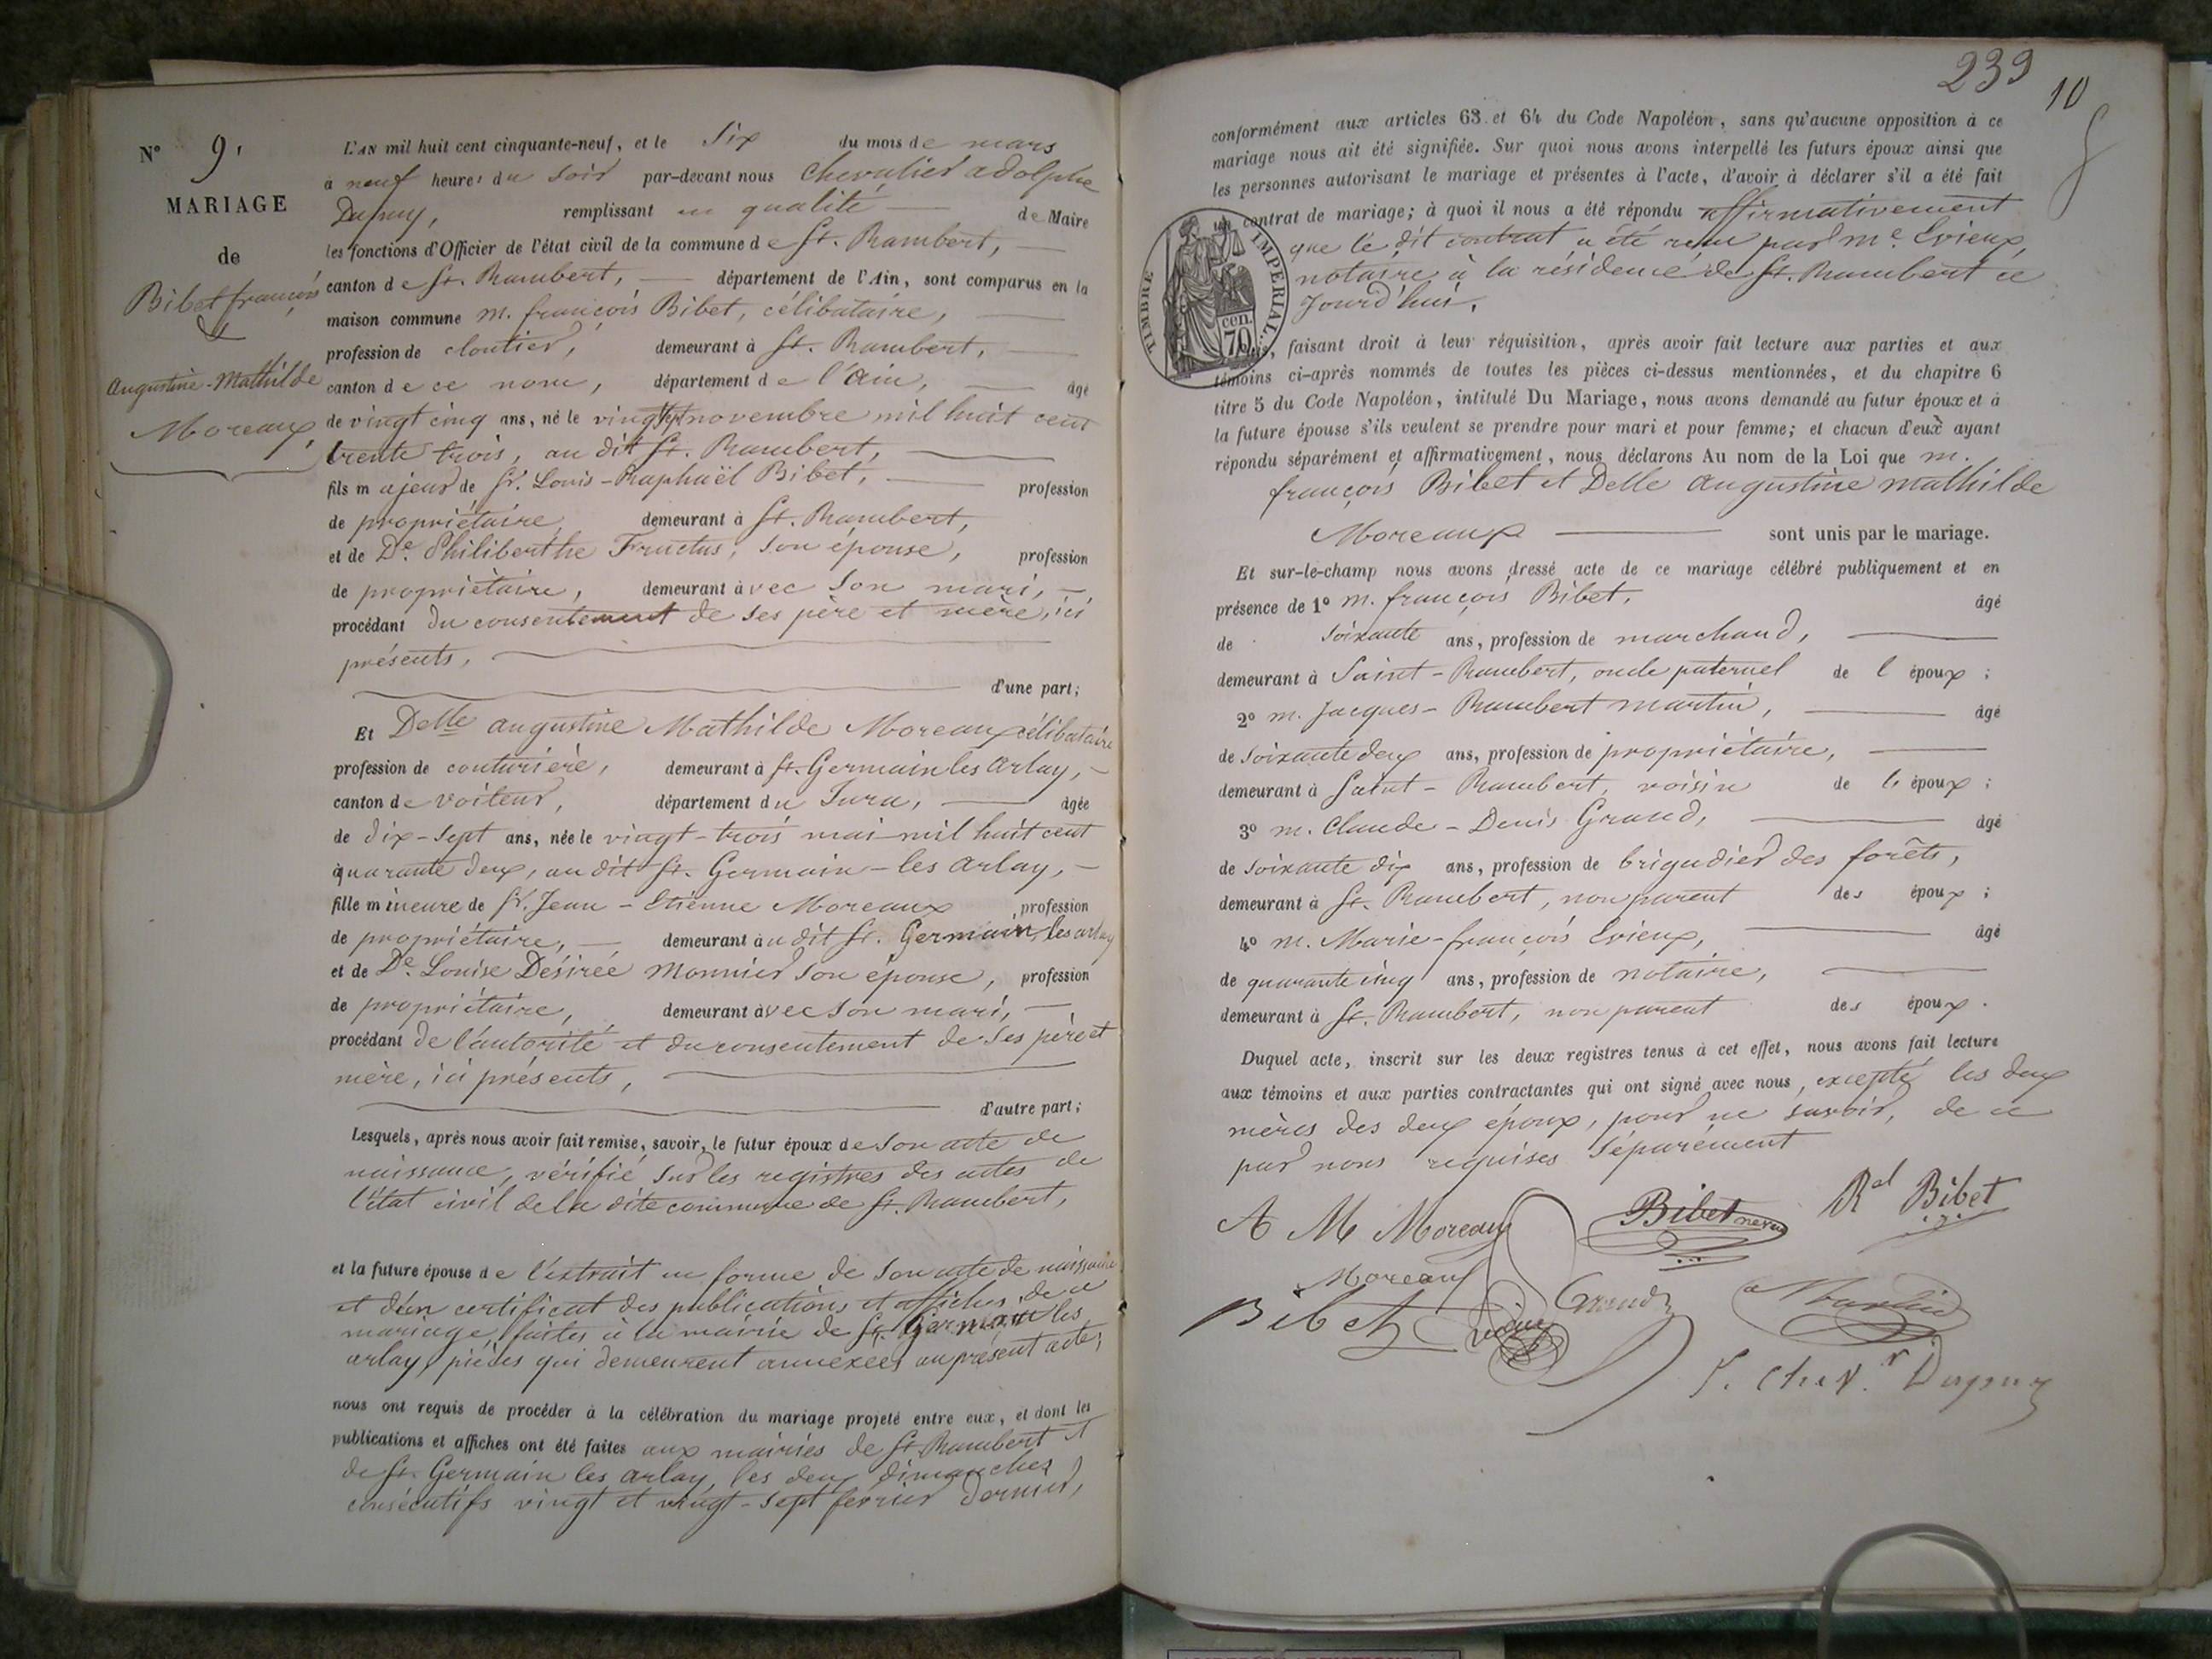 N° 9,
MARIAGE
de
Bibet françois
&
Augustine-Mathilde
Moreaux,
L'AN mil huit cent cinquante-neuf, et le Six du mois de mars
à neuf heures du Soir par-devant nous Chevalier adolphe
Dupuy, remplissant en qualité de Maire
les fonctions d'Officier de l'état civil de la commune de St. Rambert,
canton de St. Rambert, département de l'Ain, sont comparus en la
maison commune M. françois Bibet, célibataire,
profession de cloutier, demeurant à St. Rambert,
canton de ce nom, département de l'Ain, âgé
de vingt cinq ans, né le novembre mil huit cent
trente trois, au dit St. Rambert,
fils majeur de Sr. Louis-Raphaël Bibet, profession
de propriétaire, demeurant à St. Rambert,
et de De. Philiberthe Fructus, son épouse, profession
de propriétaire, demeurant avec Son mari,
procédant du consentement de ses père et mère, ici
présents,
d'une part;
Et Delle augustine Mathilde Moreaux célibataire
profession de couturière, demeurant à St. Germain les Arlay,
canton de Voiteur, département du Jura, âgée
de dix-sept ans, née le vingt-trois mai mil huit cent
quarante deux, au dit St. Germain-les Arlay,
fille mineure de Sr. Jean-Etienne Moreaux, profession
de propriétaire, demeurant au dit St. Germain, les arlay
et de De. Louise Désirée Monnier son épouse, profession
de propriétaire, demeurant avec son mari,
procédant de l'autorité et du consentement de Ses père et
mère, ici présents,
d'autre part;
Lesquels, après nous avoir fait remise, savoir, le futur époux de Son acte de
naissance, vérifié sur les registres des actes de
l'état civil de la dite commune de St. Rambert,
et la future épouse de l'extrait en forme de Son acte de naissance
et d'un certificat des publications et affiches, de ce
mariage, faites à la mairie de St. Germain les
arlay, pièces qui demeurent annexées au présent acte;
nous ont requis de procéder à la célébration du mariage projeté entre eux, et dont les
publications et affiches ont été faites aux mairies de St. Rambert et
de St. Germain les arlay, les deux dimanches
consécutifs vingt et vingt-sept février dernier,
239
10
conformément aux articles 63 et 64 du Code Napoléon, sans qu'aucune opposition à ce
mariage nous ait été signifiée. Sur quoi nous avons interpellé les futurs époux ainsi que
les personnes autorisant le mariage et présentes à l'acte, d'avoir à déclarer s'il a été fait
un contrat de mariage; à quoi il nous a été répondu affirmativement
que le dit contrat a été reçu par Me. Evieux,
notaire à la résidence de St. Rambert ce
Jourd'hui.
TIMBRE IMPERIAL
cen.
70
faisant droit à leur réquisition, après avoir fait lecture aux parties et aux
témoins ci-après nommés de toutes les pièces ci-dessus mentionnées, et du chapitre 6
titre 5 du Code Napoléon, intitulé Du Mariage, nous avons demandé au futur époux et à
la future épouse s'ils veulent se prendre pour mari et pour femme; et chacun d'eux ayant
répondu séparément et affirmativement, nous déclarons Au nom de la Loi que M.
françois Bibet et Delle Augustine Mathilde
Moreaux sont unis par le mariage.
Et sur-le-champ nous avons dressé acte de ce mariage célébré publiquement et en
présence de 1° M. françois Bibet, âgé
de Soixante ans, profession de marchand,
demeurant à Saint-Rambert, oncle paternel de l'époux;
2° M. Jacques-Rambert Martin, âgé
de Soixante deux ans, profession de propriétaire,
demeurant à Saint-Rambert, voisin de l'époux;
3° M. Claude-Denis Grand, âgé
de Soixante dix ans, profession de brigadier des forêts,
demeurant à St. Rambert, non parent des époux;
4° M. Marie-françois Evieux, âgé
de quarante cinq ans, profession de notaire,
demeurant à St. Rambert, non parent des époux.
Duquel acte, inscrit sur les deux registres tenus à cet effet, nous avons fait lecture
aux témoins et aux parties contractantes qui ont signé avec nous, excepté les deux
mères des deux époux, pour ne savoir, de ce
par nous requises Séparément
A M Moreaux
Bibet neveu
Rel Bibet
Moreaux
Bibet
Evieux
Grand
Martin
Chevr Dupuy